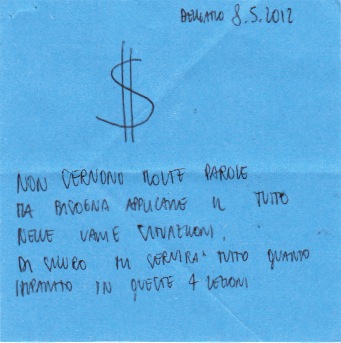 BERGAMO 8.5.2012
$
NON SERVONO MOLTE PAROLE
MA BISOGNA APPLICARE IL TUTTO
NELLE VARIE SITUAZIONI,
DI SICURO MI SERVIRA' TUTTO QUANTO
IMPARATO IN QUESTE 4 LEZIONI